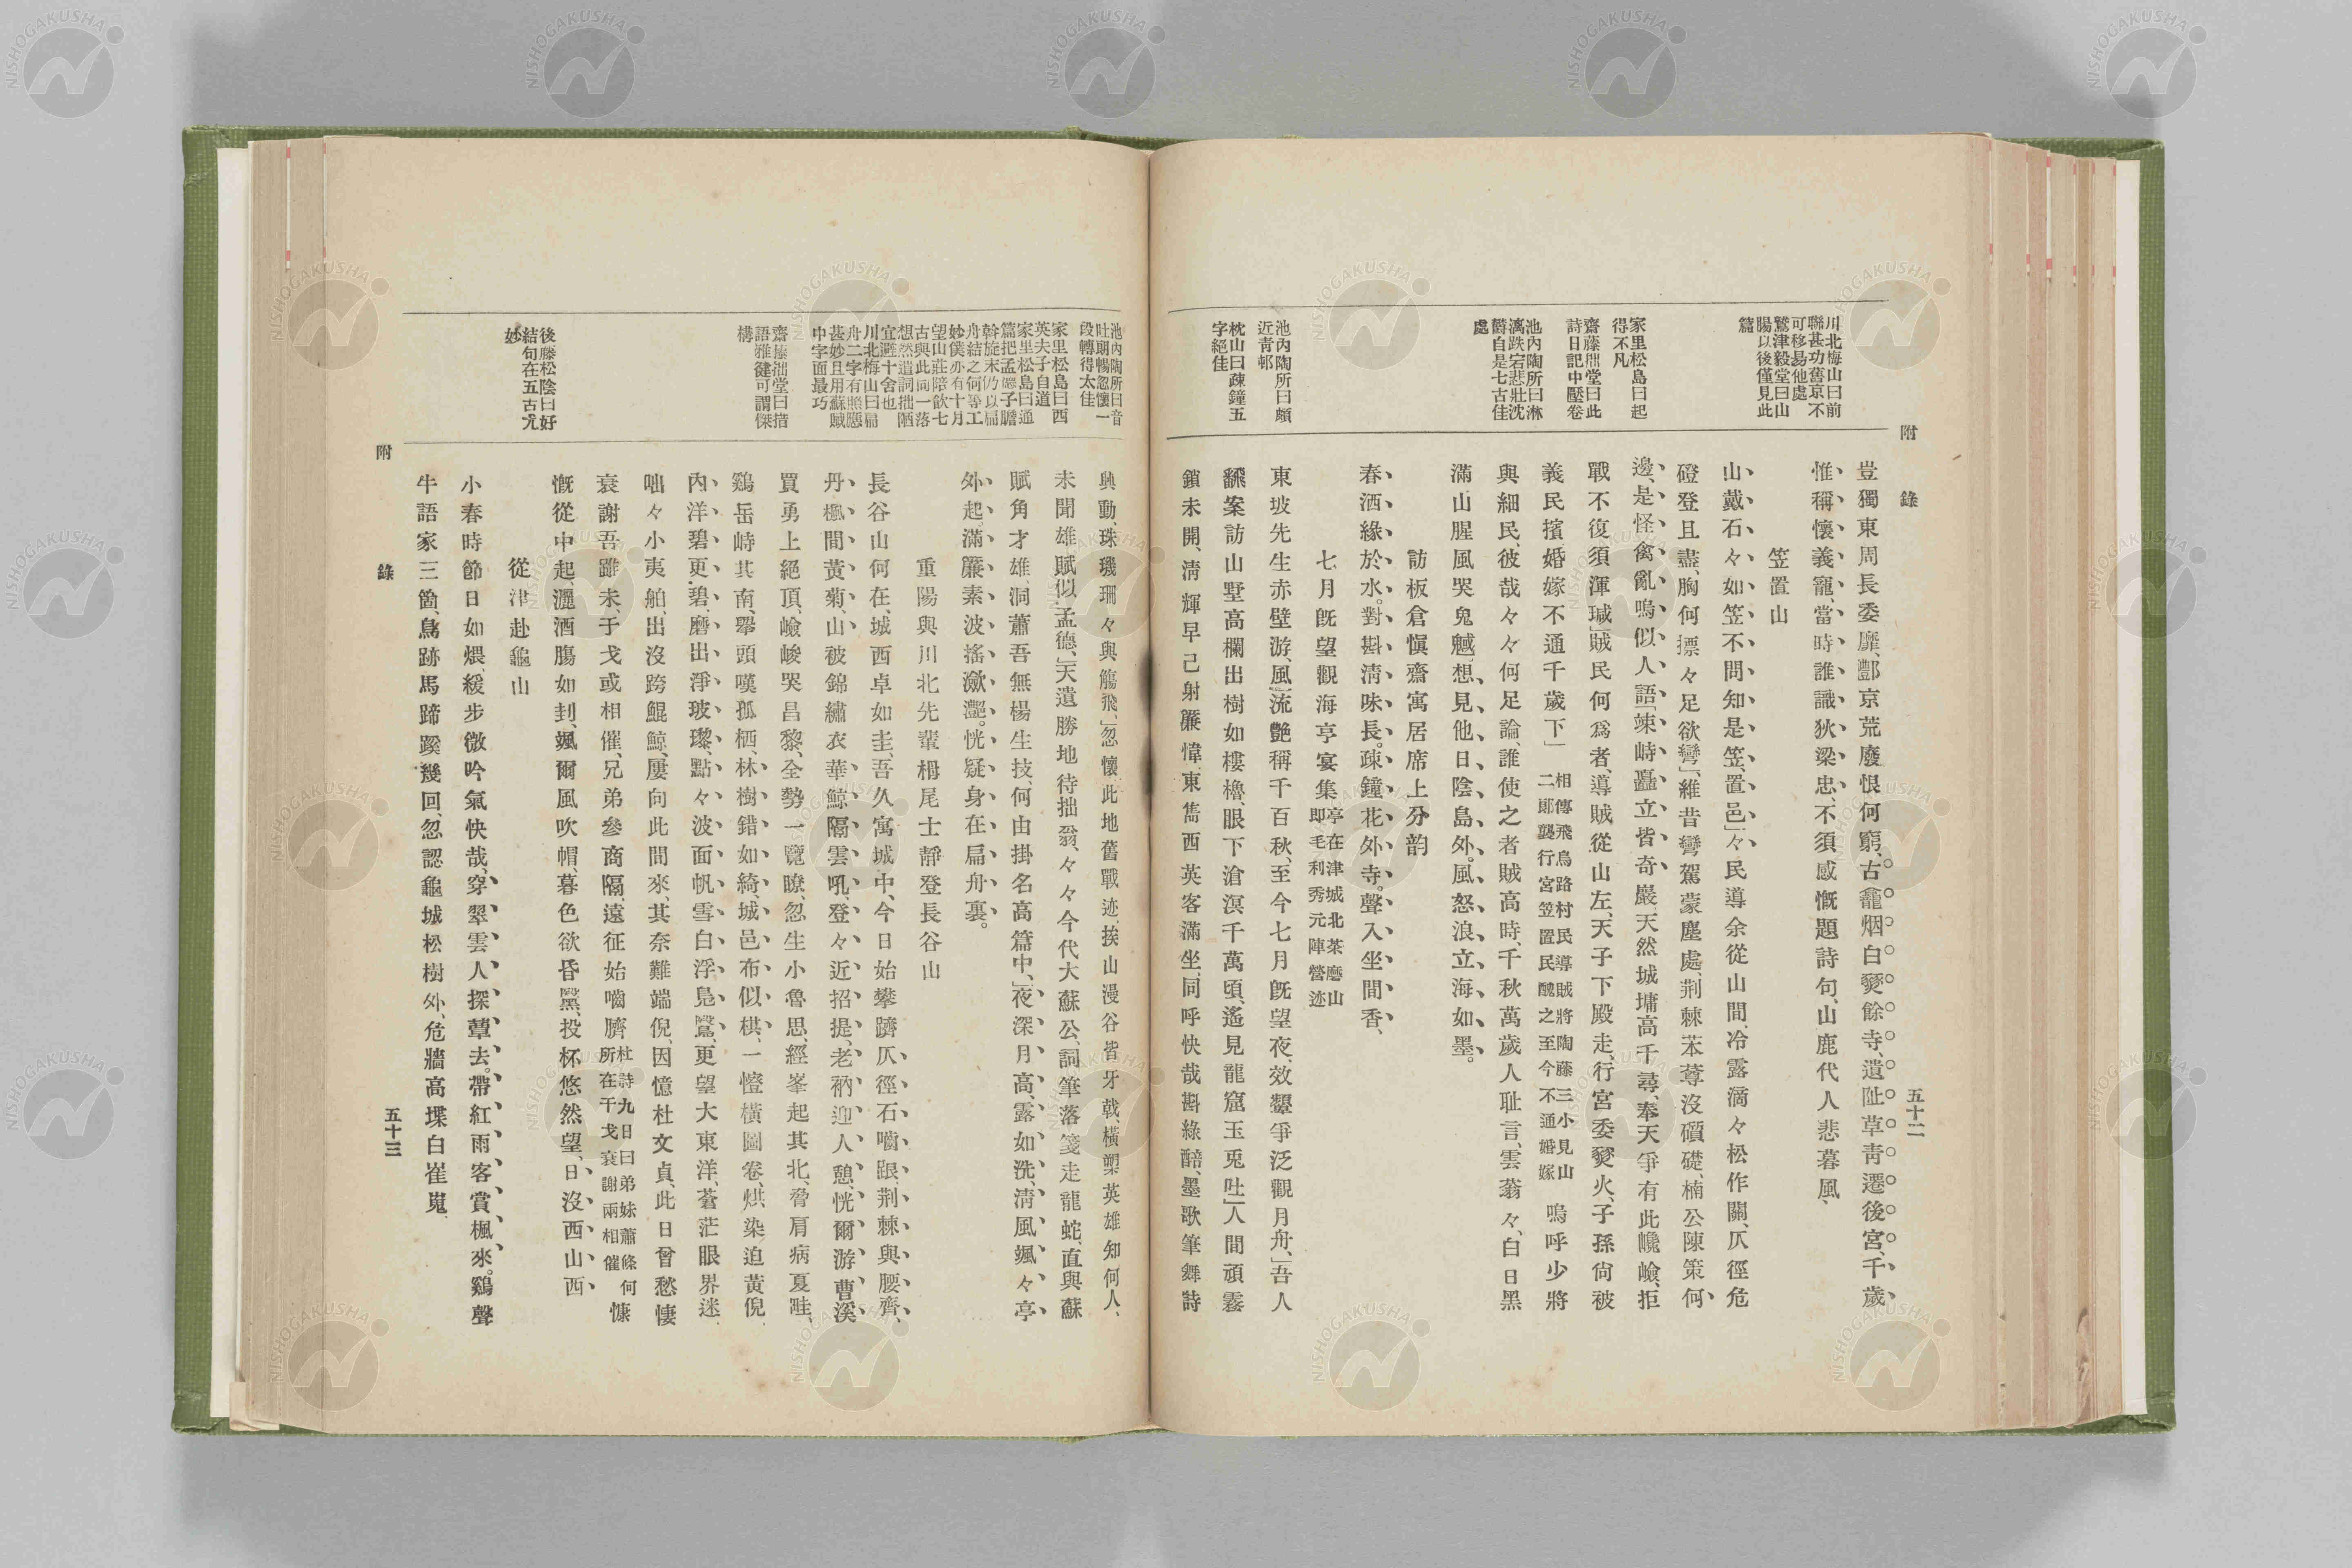 附　錄
五十二
川北梅山曰前
聯甚功舊京不
可移易他處
鷲津毅堂曰山
腸以後僅見此
篇
家里松島曰起
得不凡
齋藤拙堂曰此
詩日記中壓卷
池內陶所曰淋
漓跌宕悲壯沈
欝自是七古佳
處
池內陶所曰頗
近靑邨
枕山曰疎鐘五
字絕佳
豈獨東周長委靡、酆京荒廢恨何窮、古龕烟白燹餘寺、遺趾草靑遷後宮、千歲
惟稱懷義寵、當時誰識狄梁忠、不須感慨題詩句、山鹿代人悲暮風、
笠置山
山戴石々如笠、不問知是笠置邑」々民導余從山間、冷露滴々松作關、仄徑危
磴登且盡、胸何摽々足欲彎」維昔鸞駕蒙塵處、荆棘苯䔿沒礩礎、楠公陳策何
邊、是怪禽亂鳴似人語」竦峙矗立皆奇巖、天然城墉高千尋、奉天爭有此巉嶮、拒
戰不復須渾瑊」賊民何爲者、導賊從山左、天子下殿走、行宮委燹火、子孫尙被
義民擯、婚嫁不通千歲下」
相傳飛鳥路村民導賊將陶藤三小見山
二郞襲行宮笠置民醜之至今不通婚嫁
嗚呼少將
與細民、彼哉々々何足論、誰使之者賊高時、千秋萬歲人耻言、雲蓊々、白日黑
滿山腥風哭鬼魊、想見他日陰島外、風怒浪立海如墨。
訪板倉愼齋寓居席上分韵
春酒緣於水。對斟淸味長。疎鐘花外寺。聲入坐間香、
七月旣望觀海亭宴集
亭在津城北茶磨山
即毛利秀元陣營迹
東坡先生赤壁游、風流艷稱千百秋、至今七月旣望夜、效顰爭泛觀月舟、」吾人
飜案訪山墅、高欄出樹如樓櫓、眼下滄溟千萬頃、遙見龍窟玉兎吐」人間頑霧
鎖未開、淸輝早已射簾幃、東雋西英客滿坐、同呼快哉斟綠醅、墨歌筆舞詩
池內陶所曰音
吐朗暢忽懷一
段轉得太佳
家里松島曰西
英夫子自道
家里松島曰通
篇把孟德子瞻
斡旋末乃以扁
舟結之何等工
妙僕亦有十月
望山莊陪飮七
古與此同一落
想然遣詞拙陋
宜避十舍也
川北梅山曰扁
舟二字有照應
甚妙且用蘇賦
中字面最巧
齋藤拙堂曰措
語雅健可謂傑
構
後藤松陰曰好
結句在五古尤
妙
興動、珠璣珊々與觴飛、」忽懷此地舊戰迹、挨山漫谷皆牙戟、橫槊英雄知何人、
未聞雄賦似孟德、」天遣勝地待拙翁、々々今代大蘇公、詞筆落箋走龍蛇、直與蘇
賦角才雄、洞蕭吾無楊生技、何由掛名高篇中、」夜深月高、露如洗、淸風颯々亭
外起、滿簾素波搖瀲灔。恍疑身在扁舟裏。
重陽與川北先輩栂尾士靜登長谷山
長谷山何在、城西卓如圭、吾久寓城中、今日始攀躋、仄徑石嚙跟、荆棘與腰齊、
丹楓間黃菊、山被錦繡衣、華鯨隔雲吼、登々近招提、老衲迎人憩、恍爾游曹溪
買勇上絕頂、嶮峻哭昌黎、全勢一覽瞭、忽生小魯思、經峯起其北、脅肩病夏畦、
鷄岳峙其南、擧頭嘆孤栖、林樹錯如綺、城邑布似棋、一幢橫圖卷、烘染迫黃倪、
內洋碧更碧、磨出淨玻瓈、點々波面帆、雪白浮鳧鷖、更望大東洋、蒼茫眼界迷、
咄々小夷舶、出沒跨鯤鯨、屢向此間來、其奈難端倪、因憶杜文貞、此日曾愁悽
衰謝吾雖未、干戈或相催、兄弟參商隔、遠征始嚙臍
杜詩九日曰弟妹蕭條何
所在干戈衰謝兩相催
慷
慨從中起、灑酒膓如刲、颯爾風吹帽、暮色欲昏黳、投杯悠然望、日沒西山西
從津赴龜山
小春時節日如煨、緩步微吟氣快哉、穿翠雲人探蕈去。帶紅雨客賞楓來。鷄聲
牛語家三箇、鳥跡馬蹄蹊幾回、忽認龜城松樹外、危牆高堞白崔嵬
附　錄
五十三